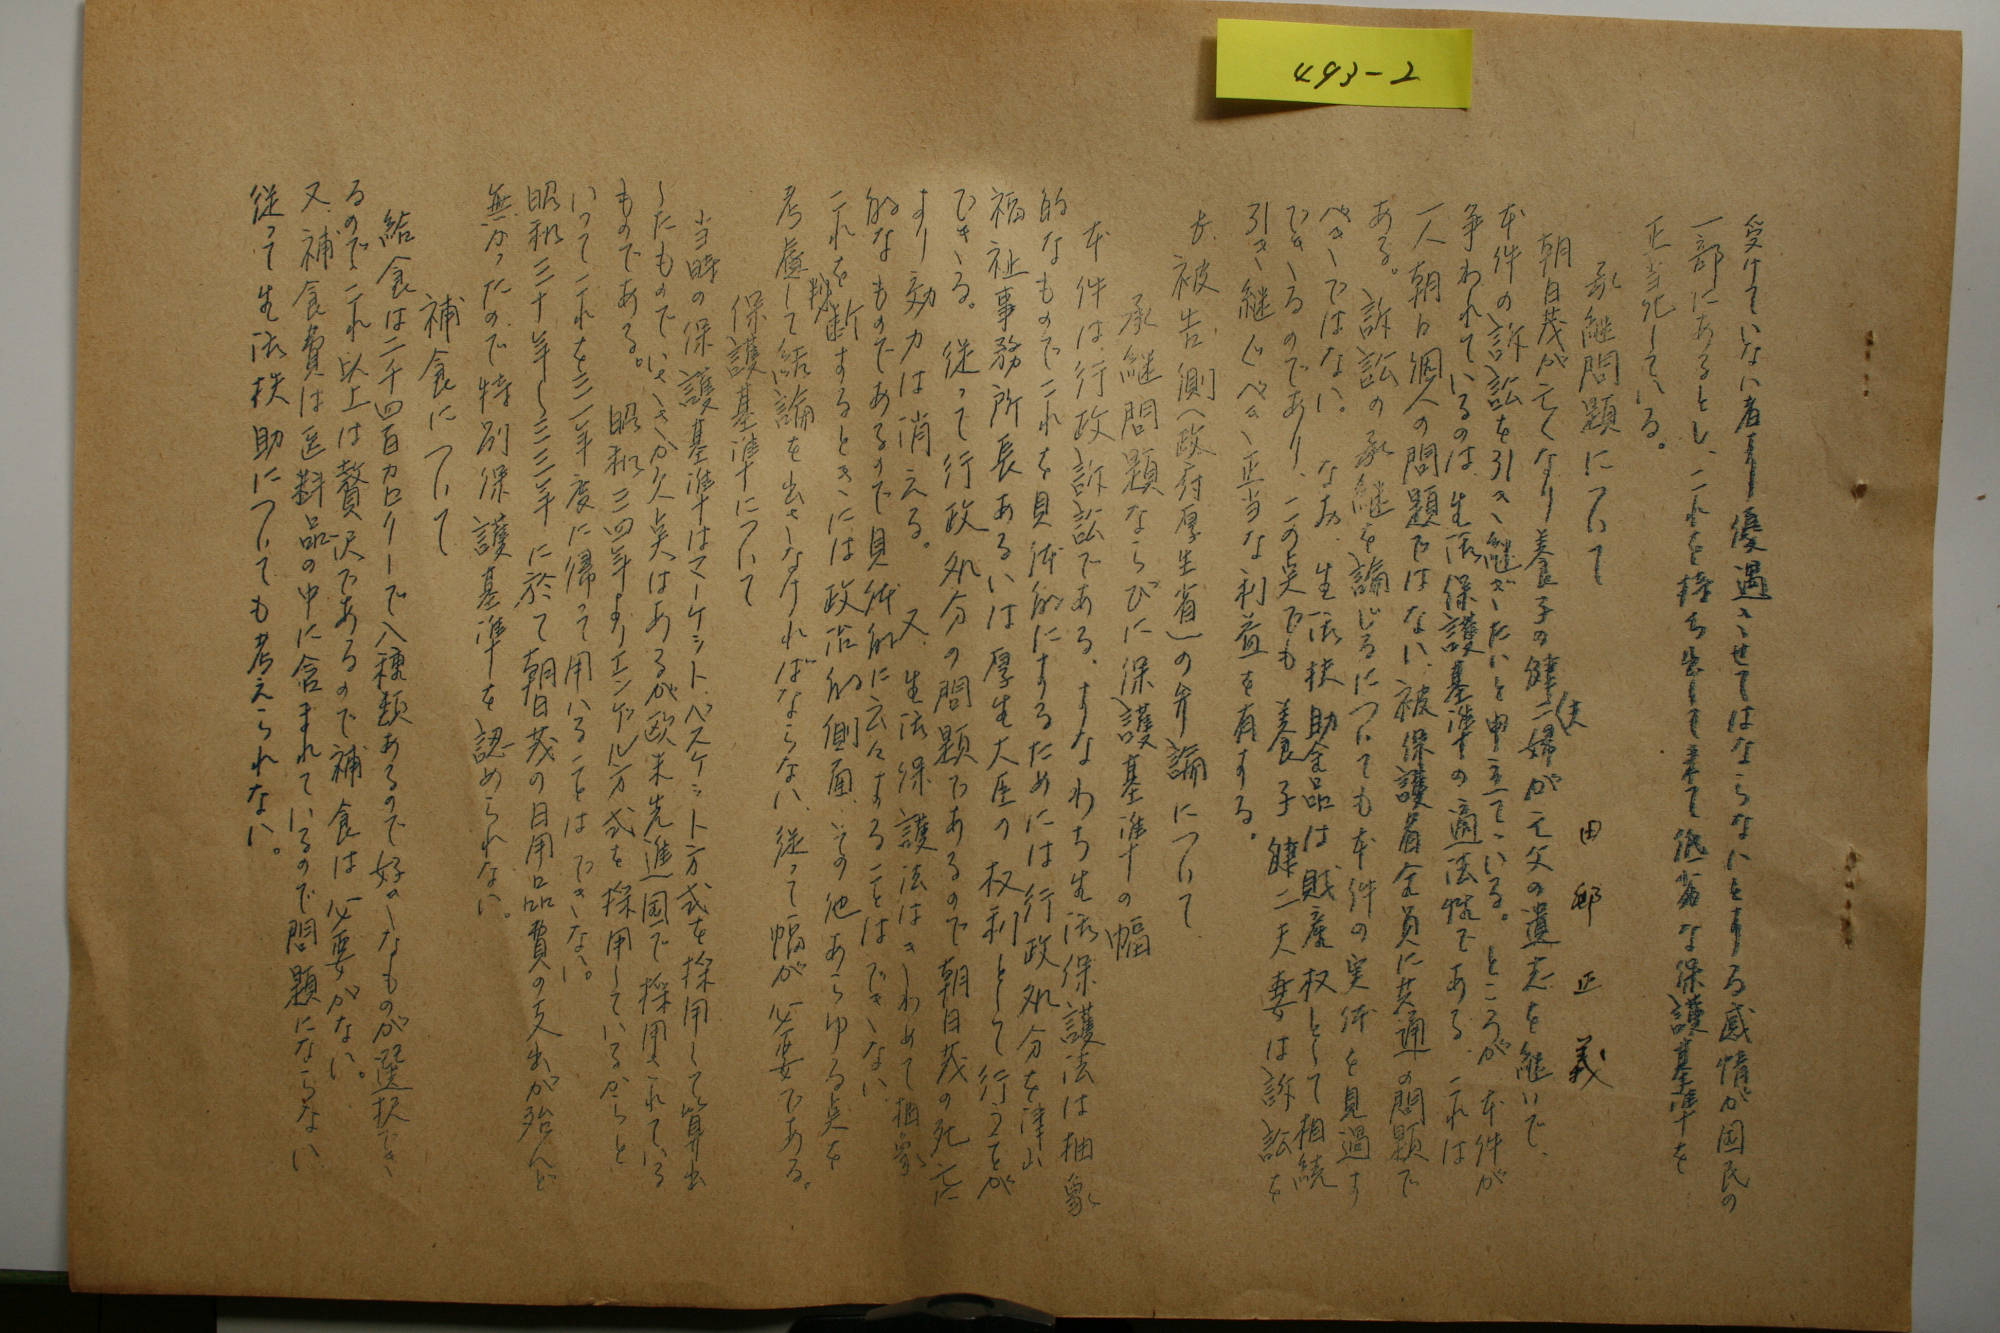 493-2
受けていない者より優遇させてはならないとする感情が国民の
一部にあるとし、これを持ち出して来て低劣な保護基準を
正当化している。
承継問題について
田邨正義
朝日茂が亡くなり養子の健二夫婦が亡父の遺志を継いで、
本件の訴訟を引き継ぎたいと申立ている。ところが本件が
争われているのは生活保護基準の適法性である。これは
一人朝日個人の問題ではない、被保護者全員に共通の問題で
ある。訴訟の承継を論じるについても本件の実体を見過す
べきではない。なお、生活扶助金品は財産权として相続
できるのであり、この点でも養子健二夫妻は訴訟を
引き継ぐべき正当な利益を有する。
被告側(政府厚生省)の弁論について
承継問題ならびに保護基準の幅
本件は行政訴訟である。すなわち生活保護法は抽象
的なものでこれを具体的にするためには行政処分を津山
福祉事務所長あるいは厚生大臣の权利として行うことが
できる。従って行政処分の問題であるので朝日茂の死亡に
より効力は消える。又、生活保護法はきわめて抽象
的なものであるので具体的に云々することはできない、
これを判断するときには政治的側面、その他あらゆる点を
考慮して結論を出さなければならない、従って幅が必要である。
保護基準について
当時の保護基準はマーケットバスケット方式を採用して算出
したものでいささか欠点はあるが欧米先進国で採用されている
ものである。昭和三四年よりエンゲル方式を採用しているからと
いってこれを三一年度に帰って用いることはできない。
昭和三十年～三三年に於て朝日茂の日用品費の支出が殆んど
無かったので特別保護基準を認められない。
補食について
給食は二千四百カロリーで八種類あるので好きなものが選択でき
るので、これ以上は贅沢であるので補食は必要がない。
又、補食費は医料品の中に含まれているので問題にならない
従って生活扶助についても考えられない。